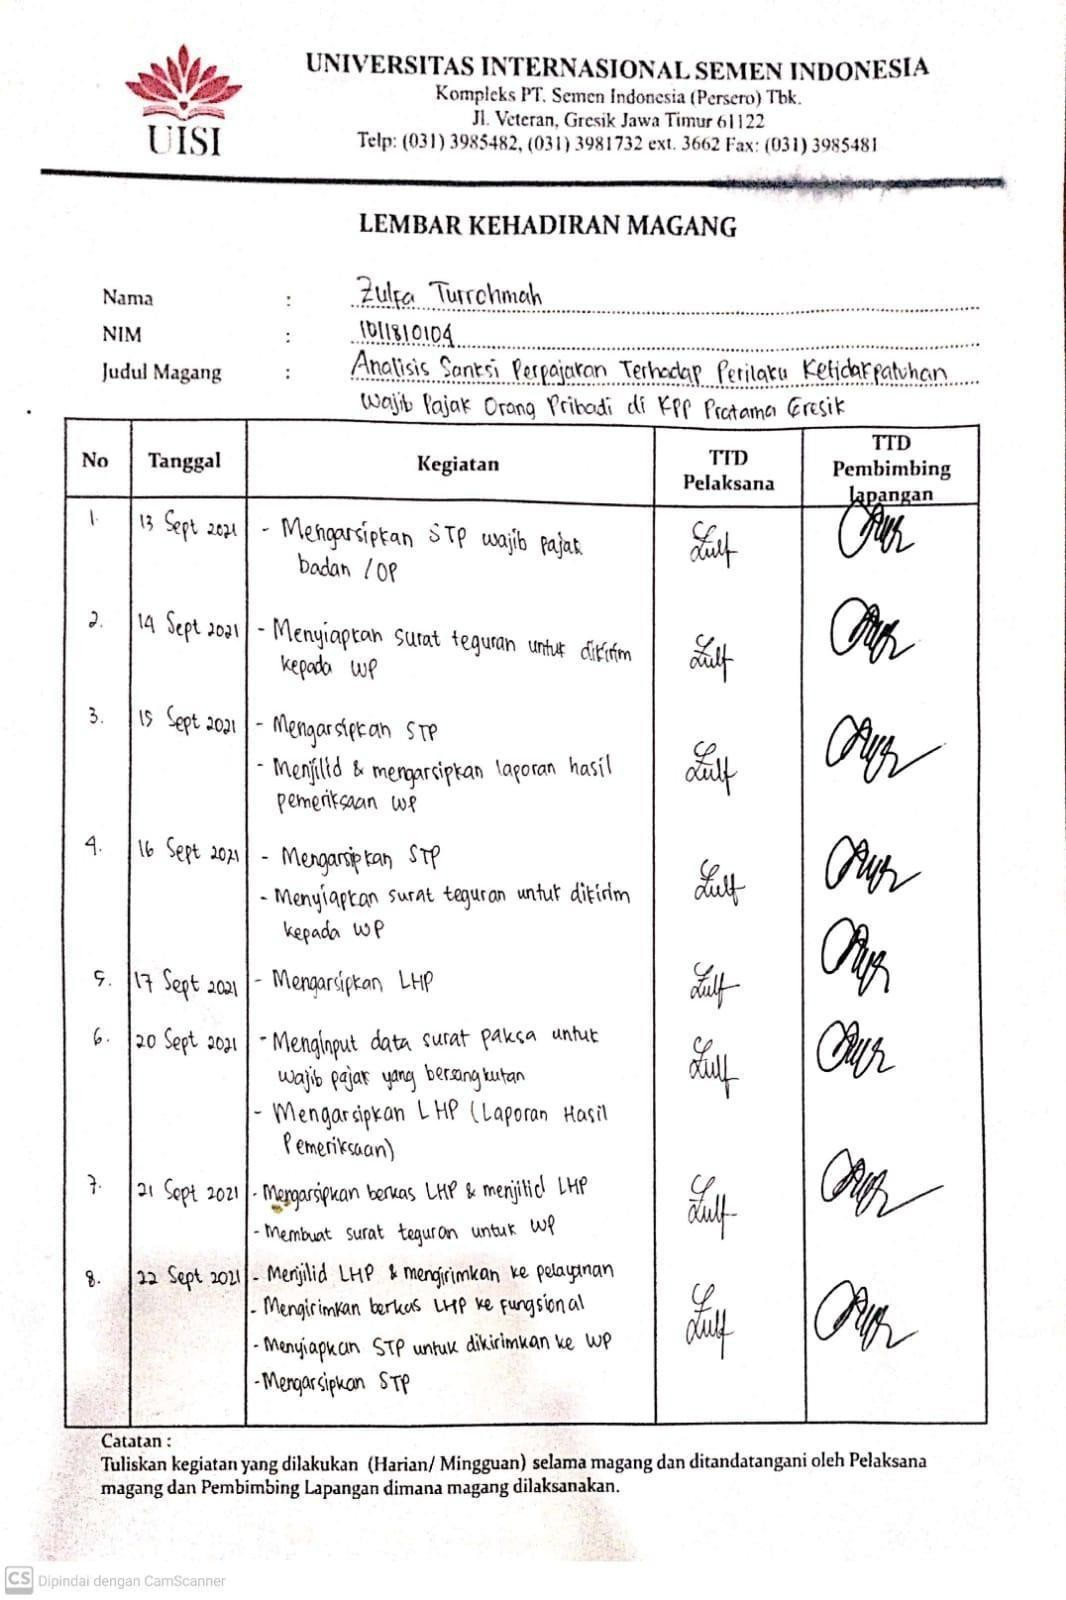 UISI
UNIVERSITAS INTERNASIONAL SEMEN INDONESIA
Kompleks PT. Semen Indonesia (Persero) Tbk.
Jl. Veteran, Gresik Jawa Timur 61122
Telp: (031) 3985482, (031) 3981732 ext. 3662 Fax: (031) 3985481
LEMBAR KEHADIRAN MAGANG
Nama : Zulfa Turrohmah
NIM : 1011810104
Judul Magang : Analisis Sanksi Perpajakan Terhadap Perilaku Ketidakpatuhan
Wajib Pajak Orang Pribadi di KPP Pratama Gresik
No Tanggal Kegiatan TTD Pelaksana TTD Pembimbing lapangan
1. 13 Sept 2021 - Mengarsipkan STP wajib pajak
badan / OP
Zulf
2. 14 Sept 2021 - Menyiapkan surat teguran untuk dikirim
kepada WP
Zulf
3. 15 Sept 2021 - Mengarsipkan STP
- Menjilid & mengarsipkan laporan hasil
pemeriksaan WP
Zulf
4. 16 Sept 2021 - Mengarsipkan STP
- Menyiapkan surat teguran untuk dikirim
kepada WP
Zulf
5. 17 Sept 2021 - Mengarsipkan LHP
Zulf
6. 20 Sept 2021 - Menginput data surat paksa untuk
wajib pajak yang bersangkutan
- Mengarsipkan LHP (Laporan Hasil
Pemeriksaan)
Zulf
7. 21 Sept 2021 - Mengarsipkan berkas LHP & menjilid LHP
- Membuat surat teguran untuk WP
Zulf
8. 22 Sept 2021 - Menjilid LHP & mengirimkan ke pelayanan
- Mengirimkan berkas LHP ke fungsional
- Menyiapkan STP untuk dikirimkan ke WP
- Mengarsipkan STP
Zulf
Catatan :
Tuliskan kegiatan yang dilakukan (Harian/ Mingguan) selama magang dan ditandatangani oleh Pelaksana
magang dan Pembimbing Lapangan dimana magang dilaksanakan.
CS Dipindai dengan CamScanner